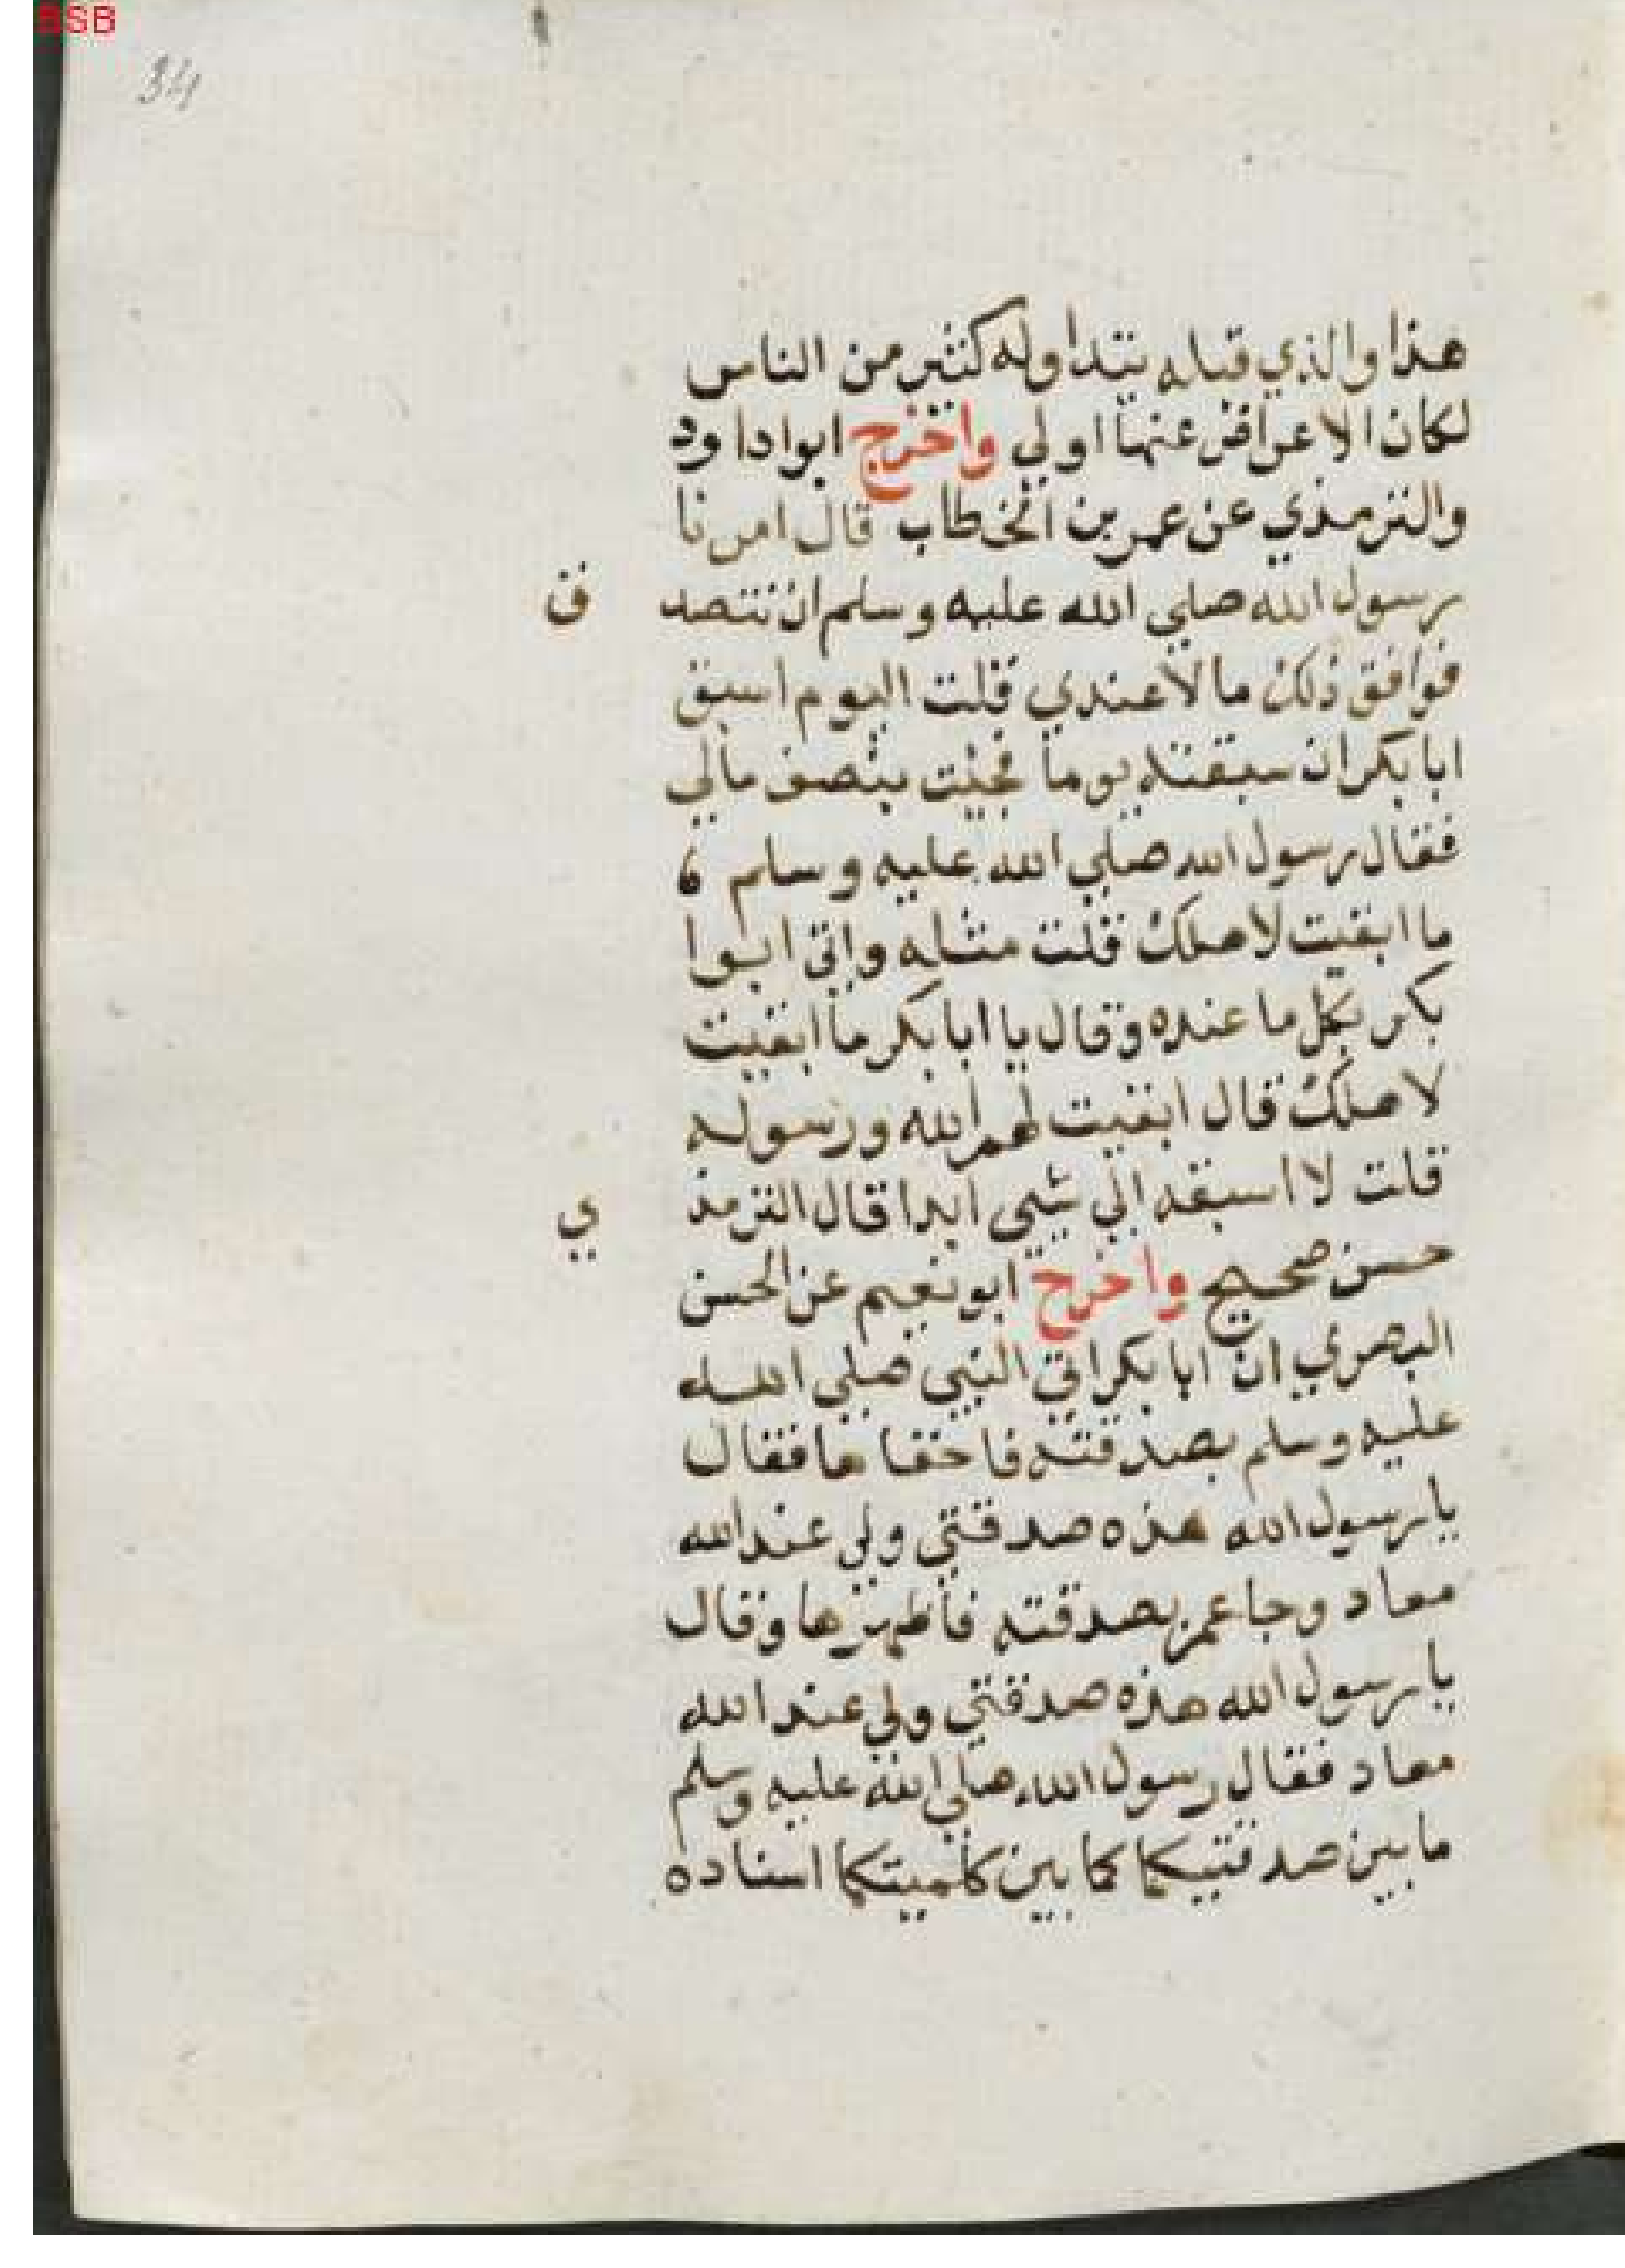 BSB
34
هذا والذي قبله يتداوله كثير من الناس
لكان الاعراض عنهما اولي واخرج ابوا داود
والترمذي عن عمر بن الخطاب قال امرنا
رسول الله صلي الله عليه وسلم ان نتصد ق
فوافق ذلك مالا عندي قلت اليوم اسبق
ابا بكر ان سبقته يوما فجئت بنصف مالي
فقال رسول الله صلي الله عليه وسلم
ما ابقيت لاهلك قلت مثله واتي ابوا
بكر بكل ما عنده وقال يا ابا بكر ما ابقيت
لاهلك قال ابقيت لهم الله ورسوله
قلت لا اسبقه الي شيي ابدا قال الترمذ ي
حسن صحيح واخرج ابو نعيم عن الحسن
البصري ان ابا بكر اتي النبي صلي الله
عليه وسلم بصدقته فاخفاها فقال
يا رسول الله هذه صدقتي ولي عند الله
معاد وجا عمر بصدقته فاظهرها وقال
يا رسول الله هذه صدقتي ولي عند الله
معاد فقال رسول الله صلي الله عليه وسلم
ما بين صدقتيكما كما بين كلميتكما اسناده